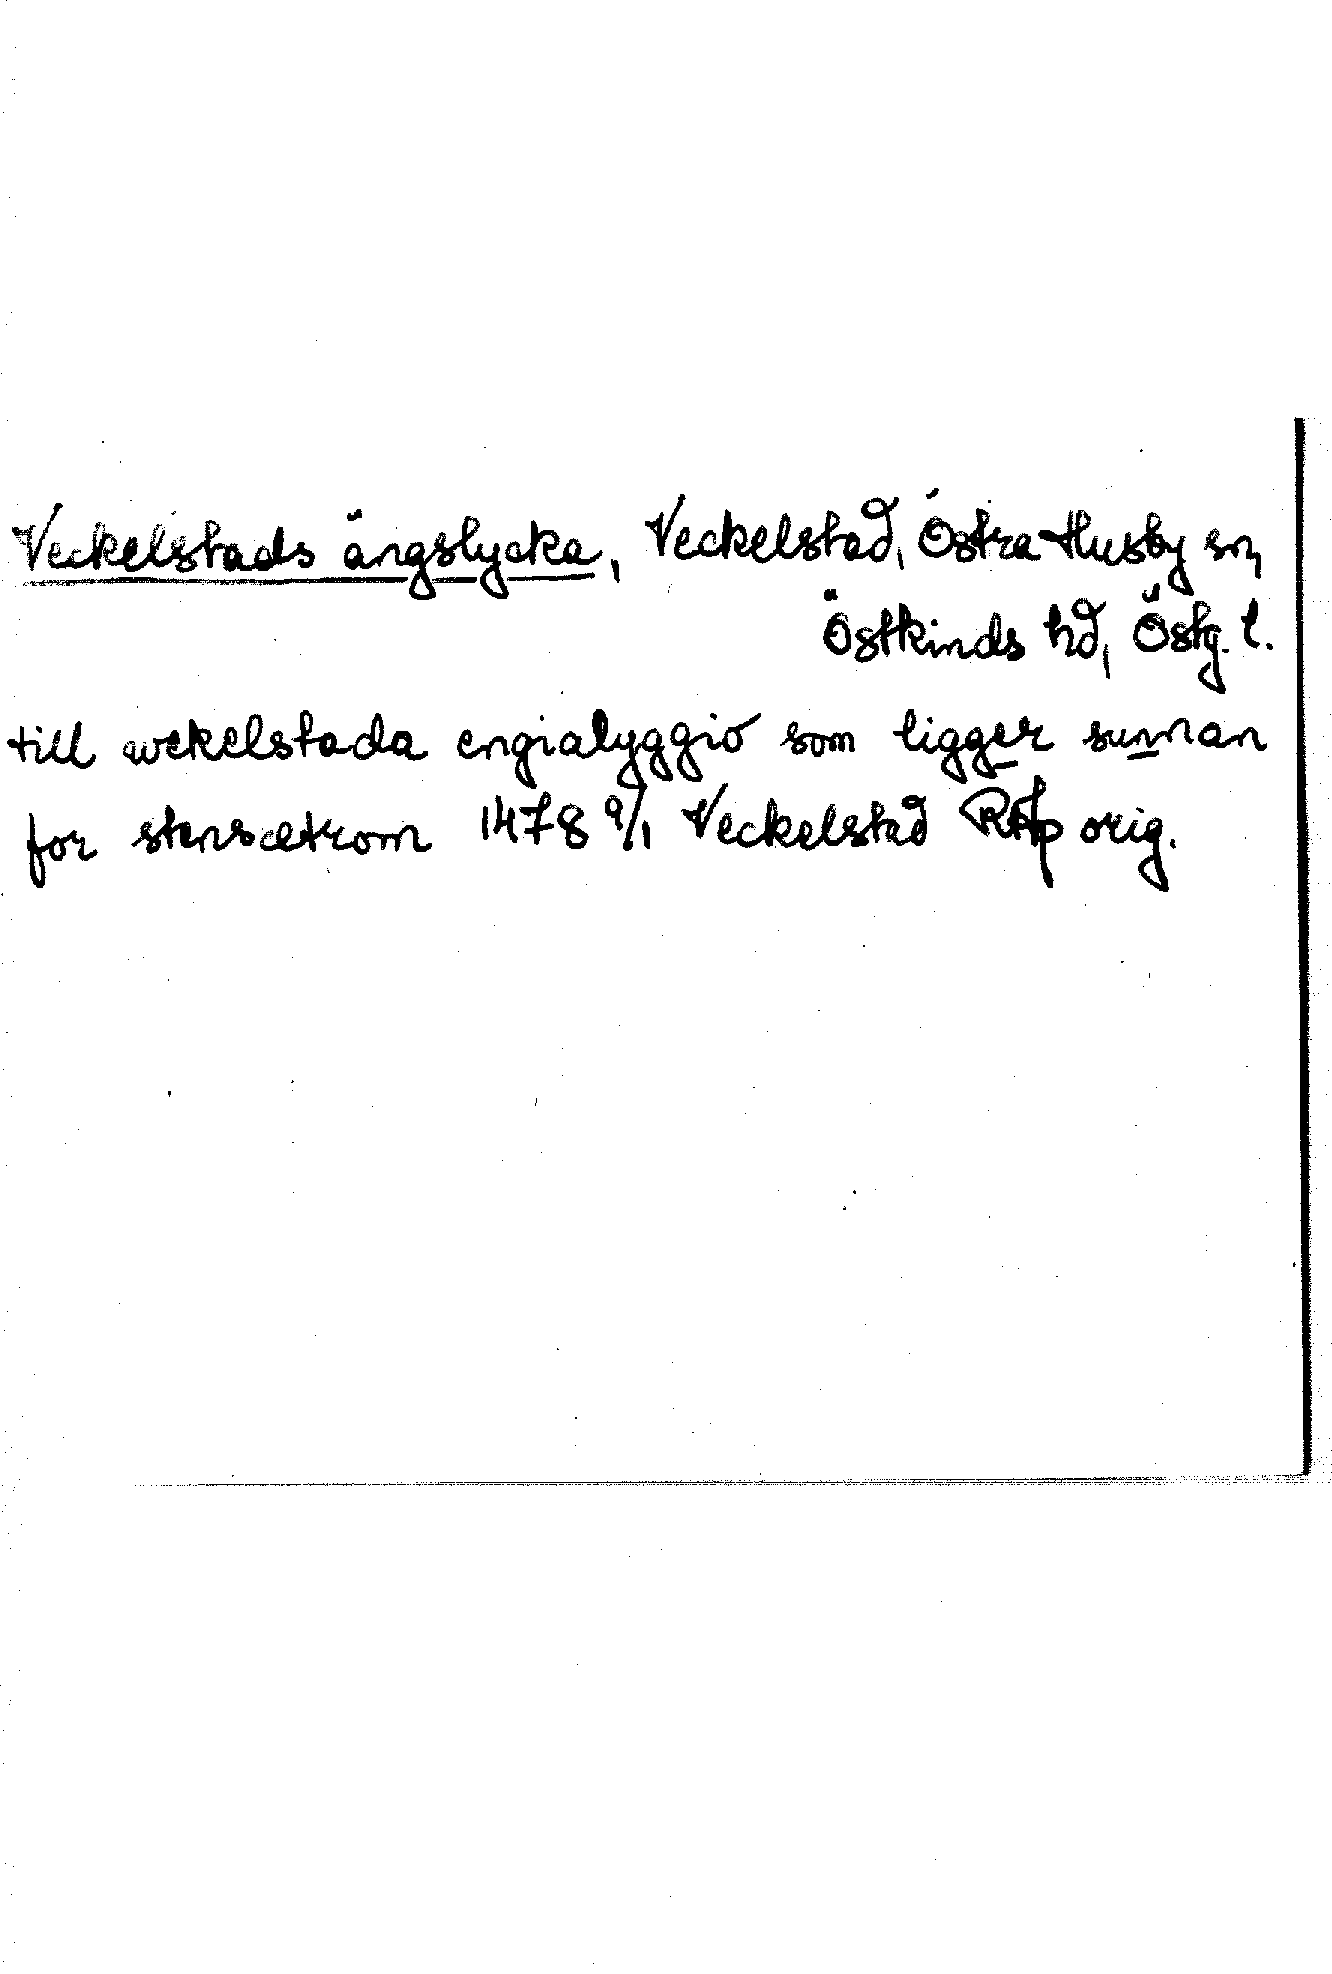 Veckelstads ängslycka, Veckelstad, Östra Husby sn,
Östkinds hd, Östg. l.
till wekelstada engialyggio som ligger sunnan
for stensætrom 1478 9/1 Veckelstad RAp orig.